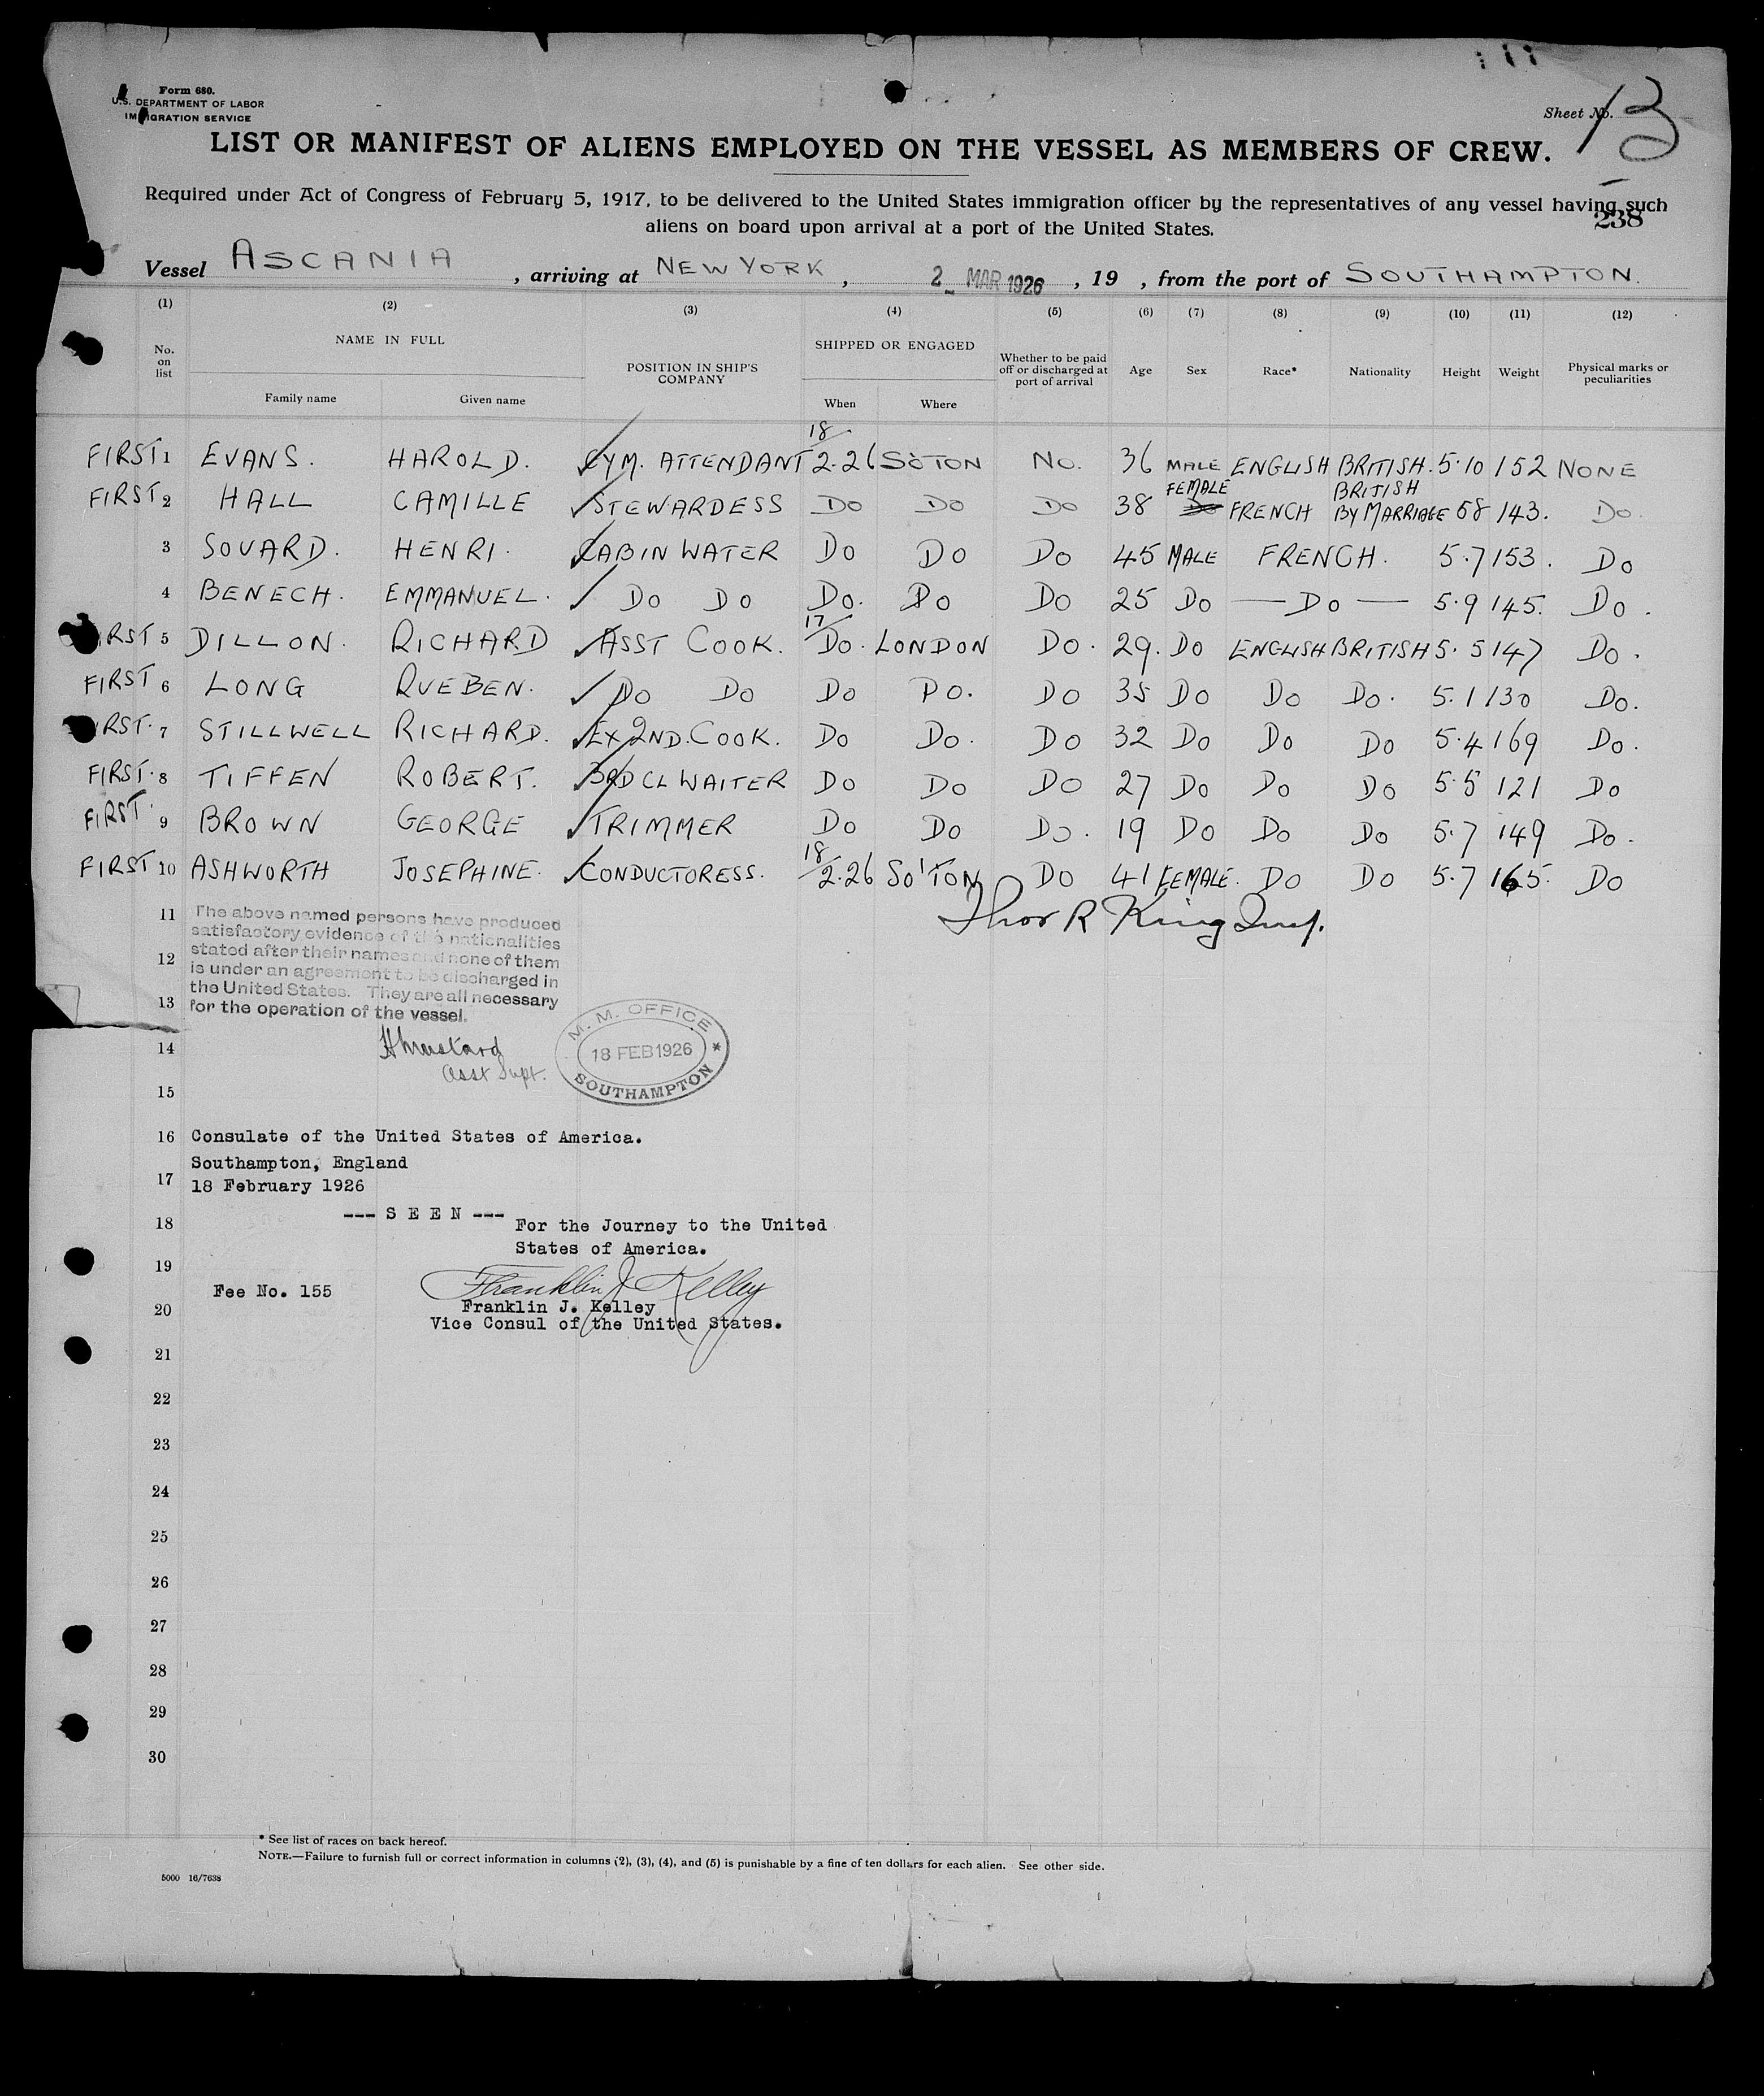 Form 680.
U.S. DEPARTMENT OF LABOR
IMMIGRATION SERVICE
Sheet No. 13
LIST OR MANIFEST OF ALIENS EMPLOYED ON THE VESSEL AS MEMBERS OF CREW.
Required under Act of Congress of February 5, 1917, to be delivered to the United States immigration officer by the representatives of any vessel having such
aliens on board upon arrival at a port of the United States.
238
Vessel ASCANIA, arriving at NEW YORK, 2 MAR 1926, 19 , from the port of SOUTHAMPTON.
(1) (2) (3) (4) (5) (6) (7) (8) (9) (10) (11) (12)
No. on list NAME IN FULL POSITION IN SHIP'S COMPANY SHIPPED OR ENGAGED Whether to be paid off or discharged at port of arrival Age Sex Race* Nationality Height Weight Physical marks or peculiarities
Family name Given name When Where
FIRST 1 EVANS. HAROLD. GYM. ATTENDANT 18/2.26 SO'TON NO. 36 MALE ENGLISH BRITISH. 5.10 152 NONE
FIRST 2 HALL CAMILLE STEWARDESS DO DO DO 38 FEMALE FRENCH BRITISH BY MARRIAGE 58 143. DO.
3 SOUARD. HENRI. CABIN WATER DO DO DO 45 MALE FRENCH. 5.7 153. DO
4 BENECH. EMMANUEL. DO DO DO. DO DO 25 DO — DO — 5.9 145. DO.
RST 5 DILLON. RICHARD ASST COOK. 17/DO. LONDON DO. 29. DO ENGLISH BRITISH 5.5 147 DO.
FIRST 6 LONG RUEBEN. DO DO DO DO. DO 35 DO DO DO. 5.1 130 DO.
IRST. 7 STILLWELL RICHARD. EX 2ND. COOK. DO DO. DO 32 DO DO DO 5.4 169 DO.
FIRST. 8 TIFFEN ROBERT. 3RD CL WAITER DO DO DO 27 DO DO DO 5.5 121 DO
FIRST 9 BROWN GEORGE TRIMMER DO DO DO. 19 DO DO DO 5.7 149 DO.
FIRST 10 ASHWORTH JOSEPHINE. CONDUCTORESS. 18/2.26 SO'TON DO 41 FEMALE. DO DO 5.7 165. DO
R King Insp.
11
The above named persons have produced
satisfactory evidence of the nationalities
12
stated after their names and none of them
is under an agreement to be discharged in
the United States. They are all necessary
13
for the operation of the vessel.
14
Asst Supt.
M. M. OFFICE
18 FEB 1926
SOUTHAMPTON
15
16 Consulate of the United States of America.
Southampton, England
17
18 February 1926
--- S E E N ---
18
For the Journey to the United
States of America.
19
Fee No. 155
Franklin J. Kelley
20
Franklin J. Kelley
Vice Consul of the United States.
21
22
23
24
25
26
27
28
29
30
* See list of races on back hereof.
NOTE.—Failure to furnish full or correct information in columns (2), (3), (4), and (5) is punishable by a fine of ten dollars for each alien. See other side.
5000 16/7638